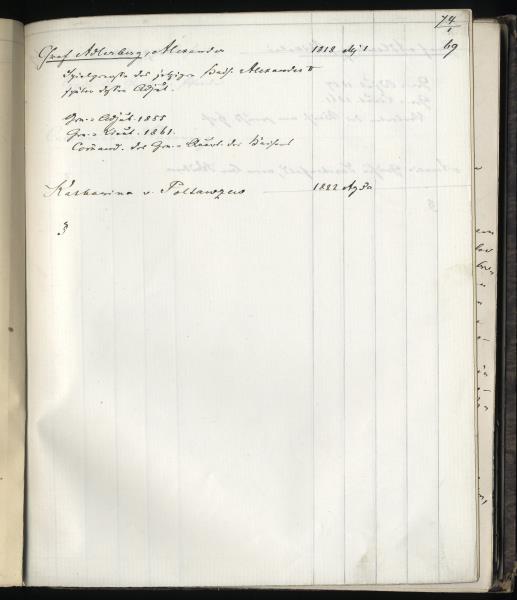 74
1
Graf Adlerberg, Alexander 1818 Mj 1 69
Spielgenosse des jetzigen Kais. Alexander II
später dessen Adjut.
Gen. Adjut. 1855
Gen. Lieut. 1861.
Command. des Gen. Quart. des Kaisers
Katharina v. Poltawzew 1822
3